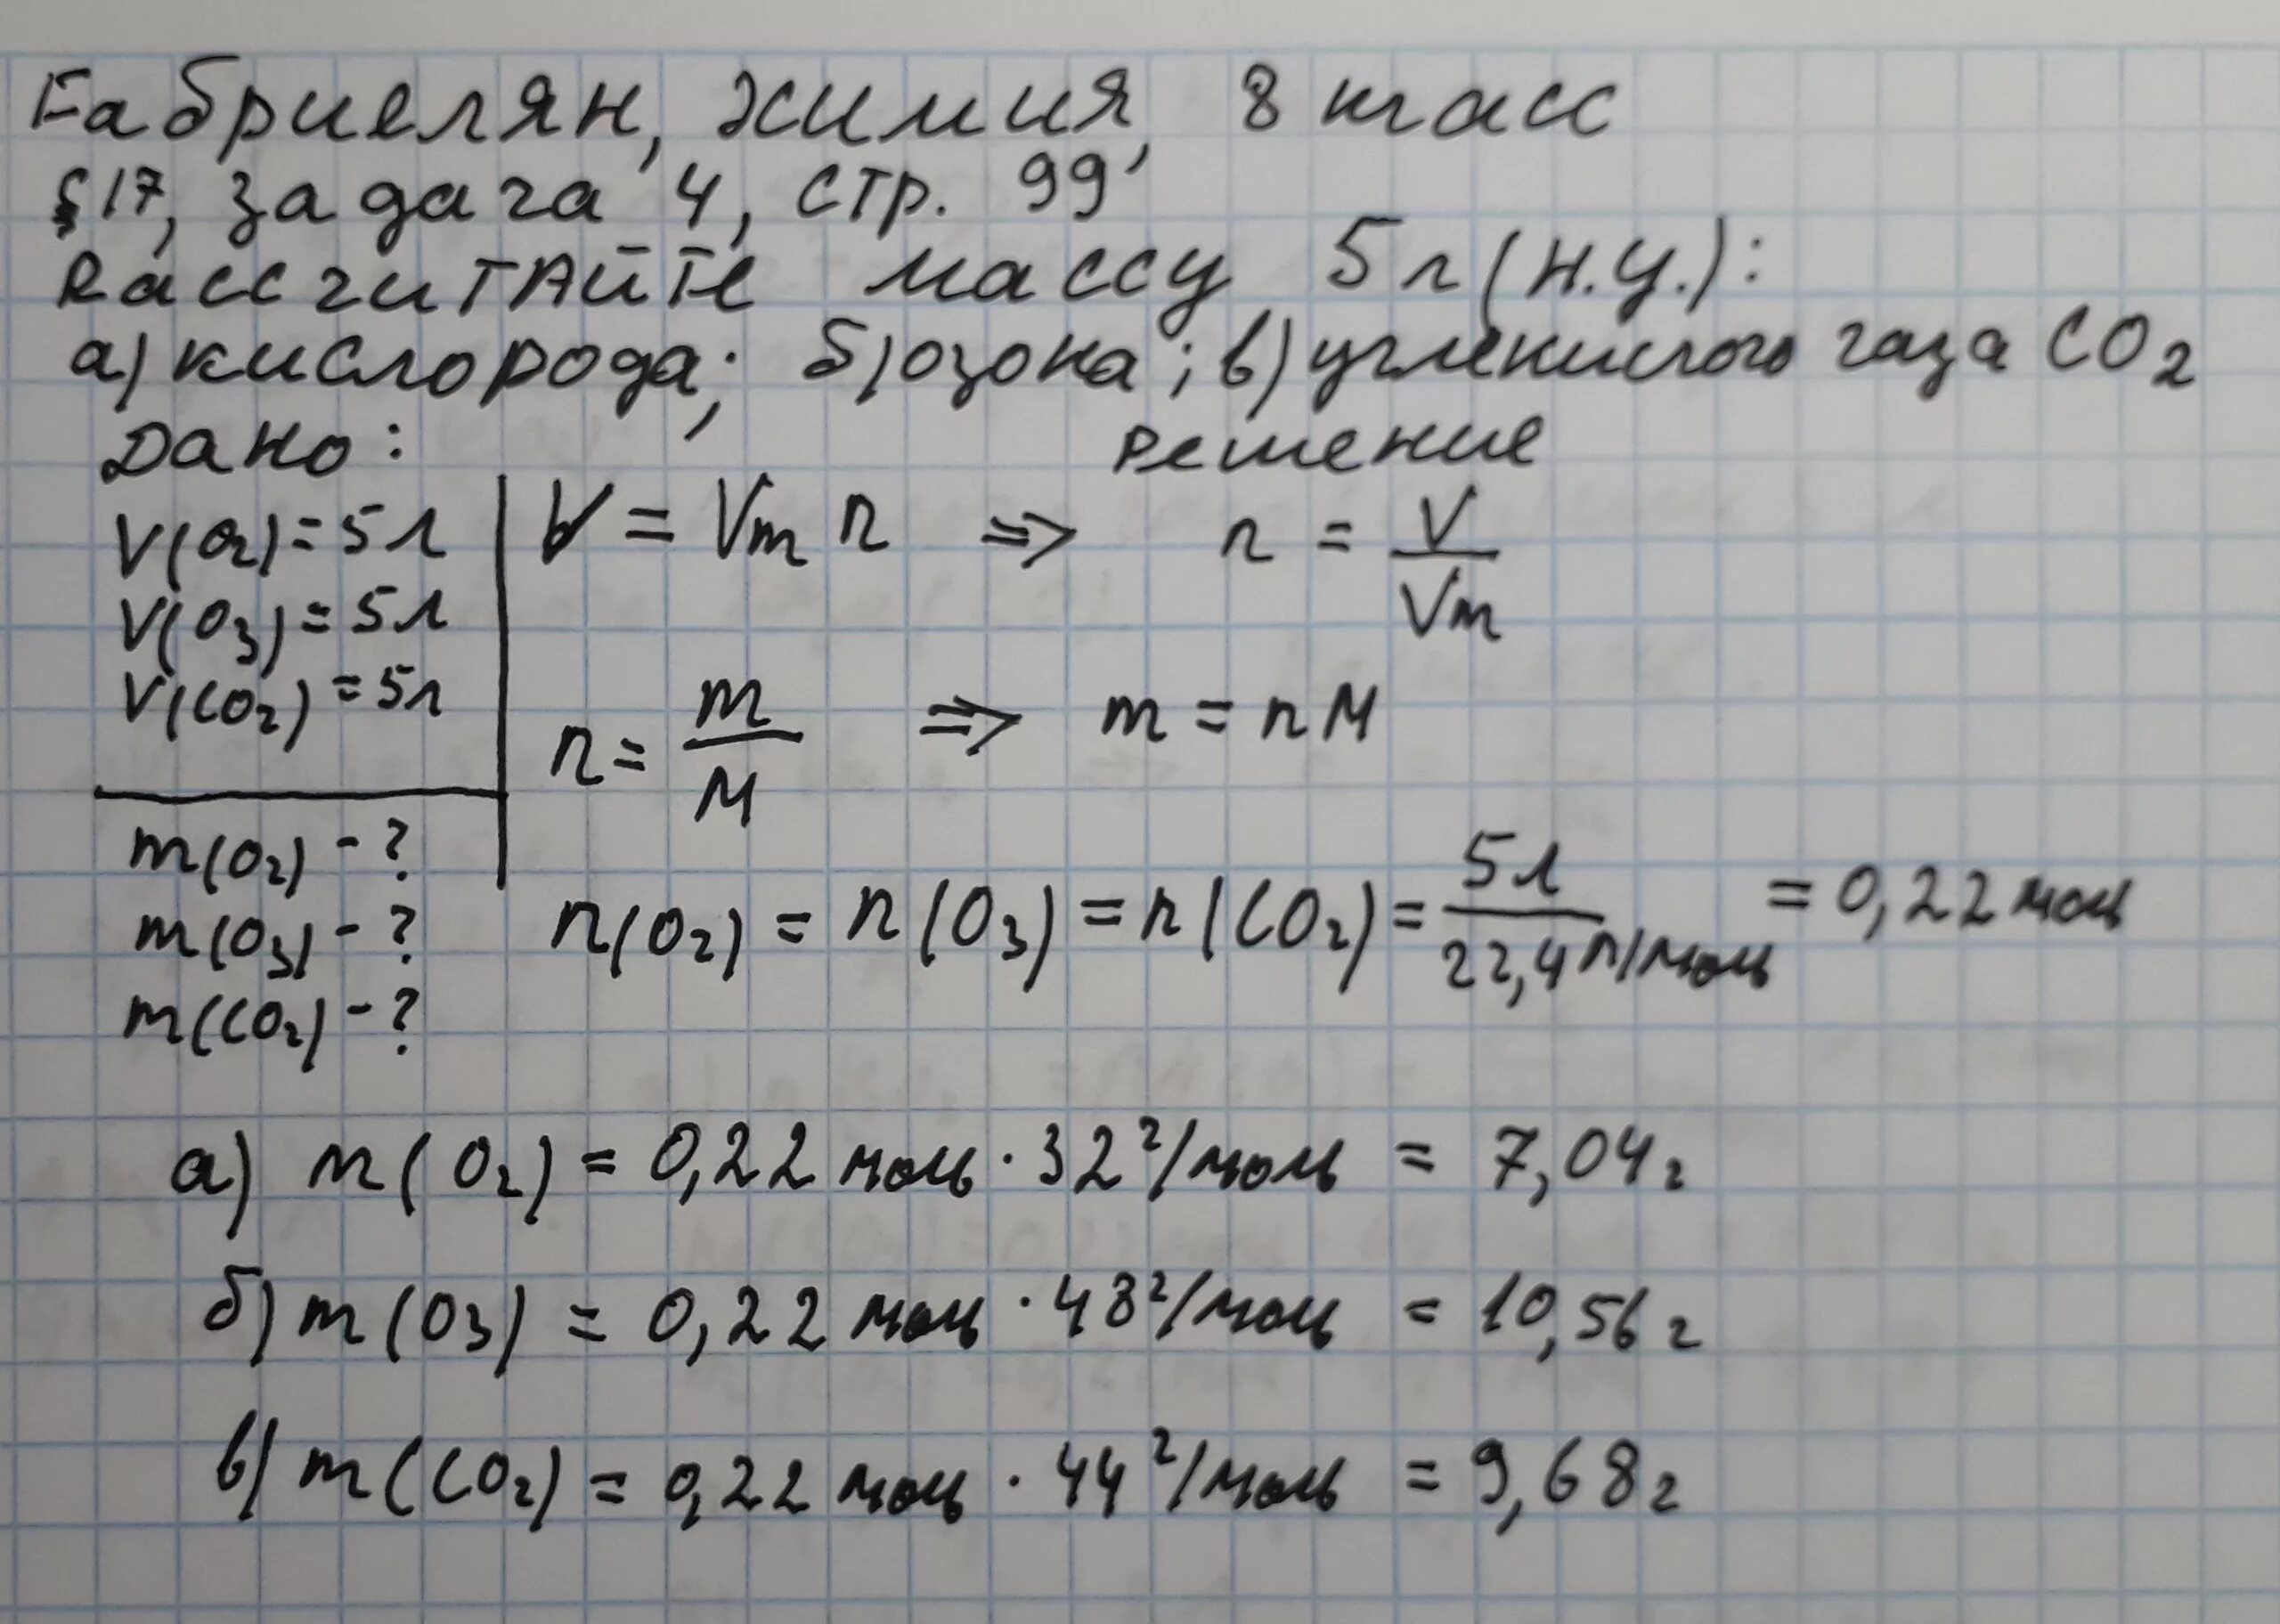 Габриелян, химия, 8 класс
§17, задача 4, стр. 99
Рассчитайте массу 5л (н.у.):
а) кислорода; б) озона; в) углекислого газа CO2
Дано:
Решение
V(O2) = 5л
V(O3) = 5л
V(CO2) = 5л
m(O2) - ?
m(O3) - ?
m(CO2) - ?
V = Vm n => n = V/Vm
n = m/M => m = nM
n(O2) = n(O3) = n(CO2) = 5л/22,4л/моль = 0,22 моль
а) m(O2) = 0,22 моль · 32 г/моль = 7,04 г
б) m(O3) = 0,22 моль · 48 г/моль = 10,56 г
в) m(CO2) = 0,22 моль · 44 г/моль = 9,68 г